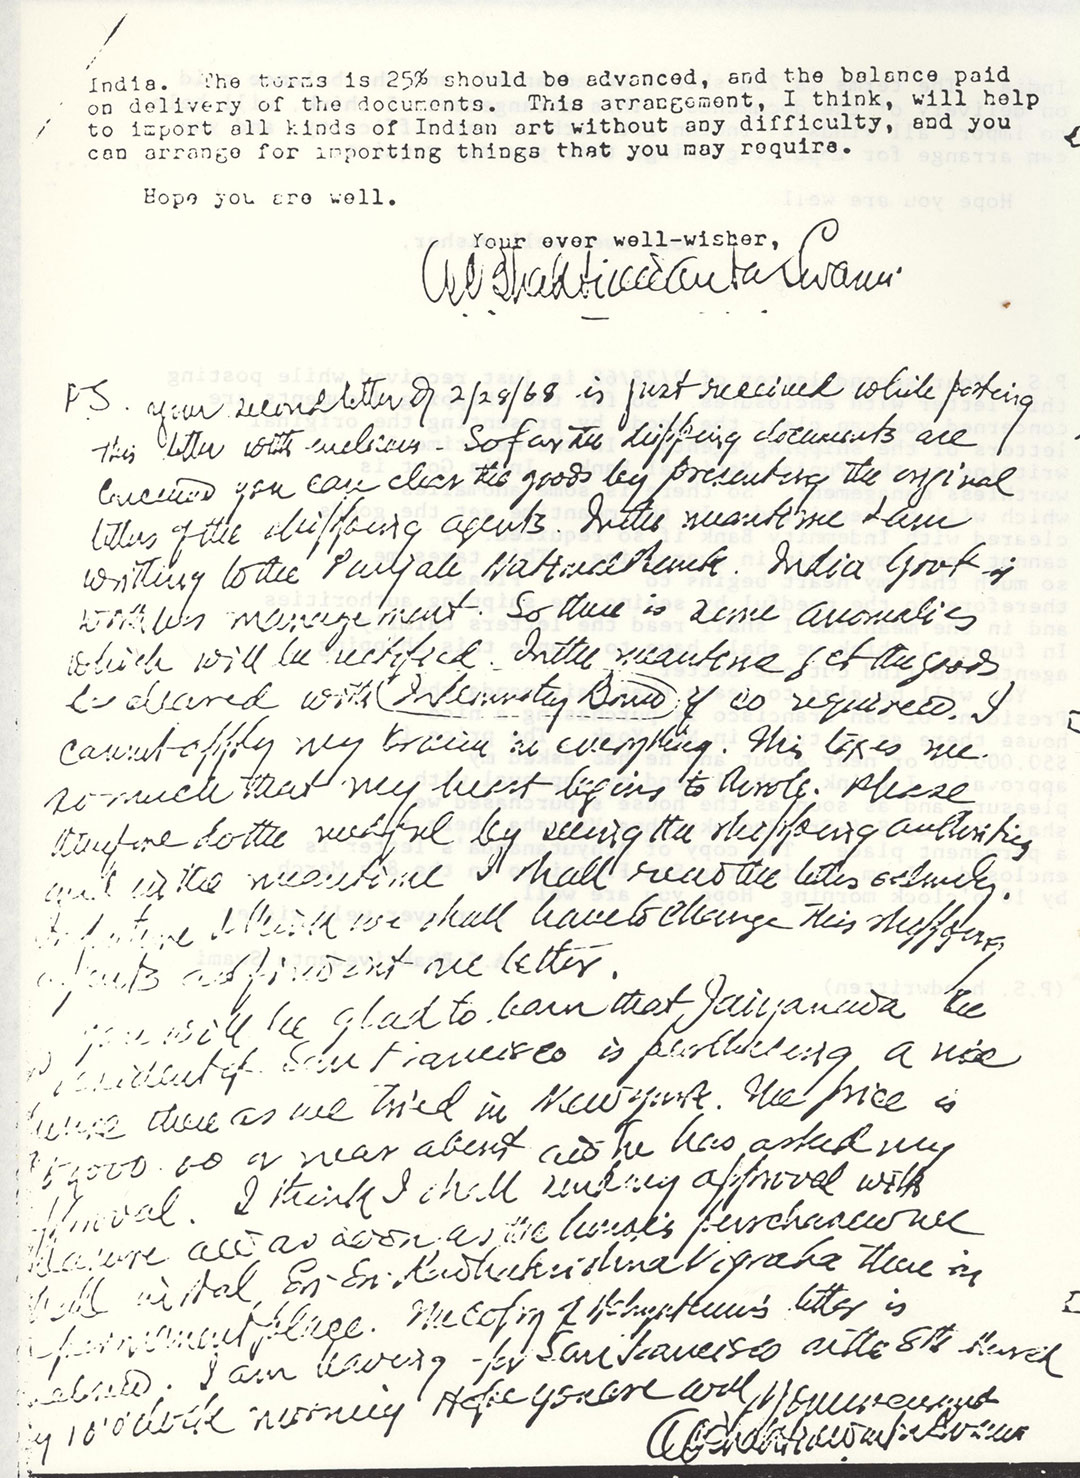 India.  The terms is 25% should be advanced, and the balance paid
on delivery of the documents.  This arrangement, I think, will help
to import all kinds of Indian art without any difficulty, and you
can arrange for importing things that you may require.
Hope you are well.
Your ever well-wisher,
A.C. Bhaktivedanta Swami
P.S. your second letter of 2/28/68 is just received while posting
this letter with enclosures. So far the shipping documents are
concerned you can clear the goods by presenting the original
letters of the shipping agents. In the meantime I am
writting to the Punjab National Bank. India Govt is
worthless management. So there is some anomalies
which will be rectified. In the meantime get the goods
cleared with Indemnity Bond if so required. I
cannot apply my brain in everything. This taxes me
so much that my heart begins to throb. Please
therefore do the needful by seeing the shipping authorities
and in the meantime I shall read the letters
In future I think we shall have to change this shipping
agents and find out one better.
You will be glad to learn that Jaiyananda the
President of San Francisco is purchasing a nice
house there as we tried in New York. The price is
000.00 or near about and he has asked my
approval. I think I shall send my approval with
pleasure and as soon as the house is purchased we
shall instal Sri Sri Radhakrishna Vigraha there in
a permanent place. The copy of letter is
enclosed. I am leaving for San Francisco on the 8th March
by 10 o'clock morning Hope you are well
A.C. Bhaktivedanta Swami